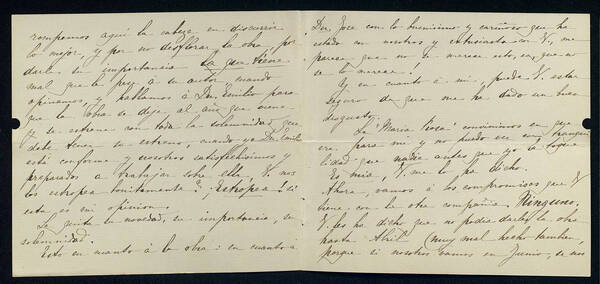 rompemos aquí la cabeza en discurrir
lo mejor, y por no desflorar la obra, por
darle su importancia la que tiene
mal que le pese á su autor, cuando
opinamos, y hablamos á Dn. Emilio para
que la obra se deje al año que viene
y se estrene con toda la solemnidad que
debe tener su estreno, cuando ya Dn. Emilio
está conforme y nosotros satisfechísimos y
preparados a trabajar sobre ella, V. nos
los estropea bonitamente? ¡Estropea! sí
esta es mi opinion.
Le quita su novedad, su importancia, su
solemnidad.
Esto en cuanto á la obra: en cuanto á
Dn. José con lo buenísimo y cariñoso que ha
estado con nosotros y entusiasta con V., me
parece que no se merece esto, ca, que no
se lo merece!
Y en cuanto á mi, puede V. estar
seguro de que me ha dado un buen
disgusto;
La "Maria Rosa" convinimos en que
era para mi y no puedo ver con tranqui
lidad que nadie antes que yo la toque
Es mia, V. me lo ha dicho.
Ahora, vamos á los compromisos que V.
tiene con la otra compañia. Ninguno.
V. les ha dicho que no podia darles la obra
hasta Abril (muy mal hecho tambien,
porque si nosotros vamos en Junio, se nos